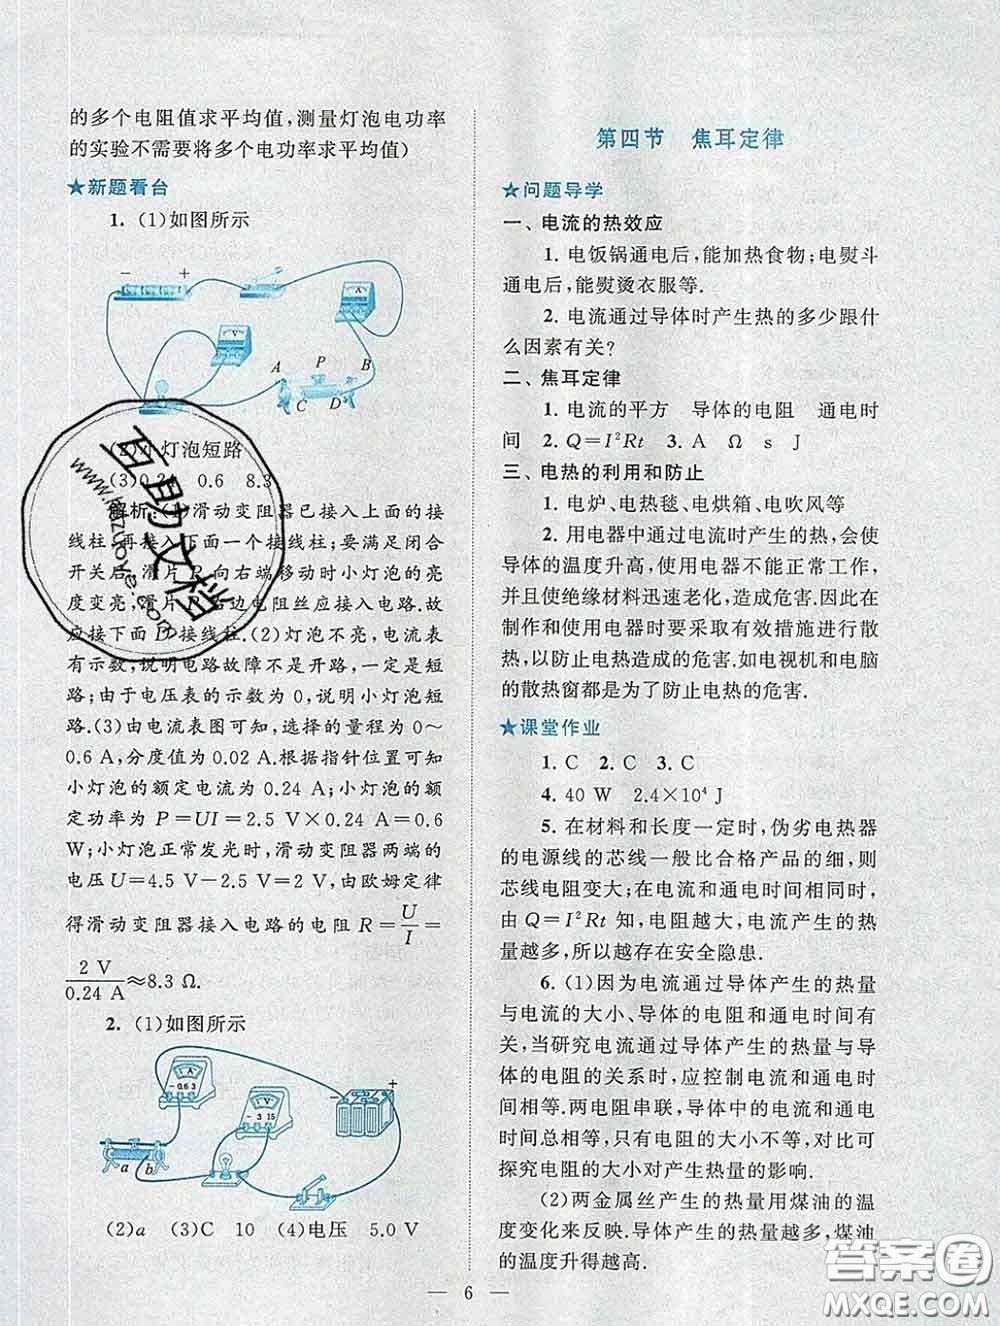 的多个电阻值求平均值,测量灯泡电功率
的实验不需要将多个电功率求平均值)
★新题看台
1. (1)如图所示
− +
A
V
A P B
C D
(2)小灯泡短路
(3)0.24 0.6 8.3
解析:(1)滑动变阻器已接入上面的接
线柱,再接入下面一个接线柱;要满足闭合
开关后,滑片 P 向右端移动时小灯泡的亮
度变亮,滑片 P 右边电阻丝应接入电路.故
应接下面 D 接线柱.(2)灯泡不亮,电流表
有示数,说明电路故障不是开路,一定是短
路;由于电压表的示数为 0,说明小灯泡短
路.(3)由电流表图可知,选择的量程为 0~
0.6 A,分度值为 0.02 A.根据指针位置可知
小灯泡的额定电流为 0.24 A;小灯泡的额
定功率为 P=UI=2.5 V×0.24 A=0.6
W;小灯泡正常发光时,滑动变阻器两端的
电压 U=4.5 V−2.5 V=2 V,由欧姆定律
得滑动变阻器接入电路的电阻 R=U/I=
2 V/0.24 A≈8.3 Ω.
2. (1)如图所示
A
− 0.6 3
V
− 3 15
− +
a b
(2)a (3)C 10 (4)电压 5.0 V
第四节 焦耳定律
★问题导学
一、电流的热效应
1. 电饭锅通电后,能加热食物;电熨斗
通电后,能熨烫衣服等.
2. 电流通过导体时产生热的多少跟什
么因素有关?
二、焦耳定律
1. 电流的平方 导体的电阻 通电时
间 2. Q=I²Rt 3. A Ω s J
三、电热的利用和防止
1. 电炉、电热毯、电烘箱、电吹风等
2. 用电器中通过电流时产生的热,会使
导体的温度升高,使用电器不能正常工作,
并且使绝缘材料迅速老化,造成危害.因此在
制作和使用电器时要采取有效措施进行散
热,以防止电热造成的危害.如电视机和电脑
的散热窗都是为了防止电热的危害.
★课堂作业
1. C 2. C 3. C
4. 40 W 2.4×10⁴ J
5. 在材料和长度一定时,伪劣电热器
的电源线的芯线一般比合格产品的细,则
芯线电阻变大;在电流和通电时间相同时,
由 Q=I²Rt 知,电阻越大,电流产生的热
量越多,所以越存在安全隐患.
6. (1)因为电流通过导体产生的热量
与电流的大小、导体的电阻和通电时间有
关,当研究电流通过导体产生的热量与导
体的电阻的关系时,应控制电流和通电时
间相等.两电阻串联,导体中的电流和通电
时间总相等,只有电阻的大小不等,对比可
探究电阻的大小对产生热量的影响.
(2)两金属丝产生的热量用煤油的温
度变化来反映.导体产生的热量越多,煤油
的温度升得越高.
— 6 —
互助文档
www.huzuoke.com
答案圈
MXQE.COM